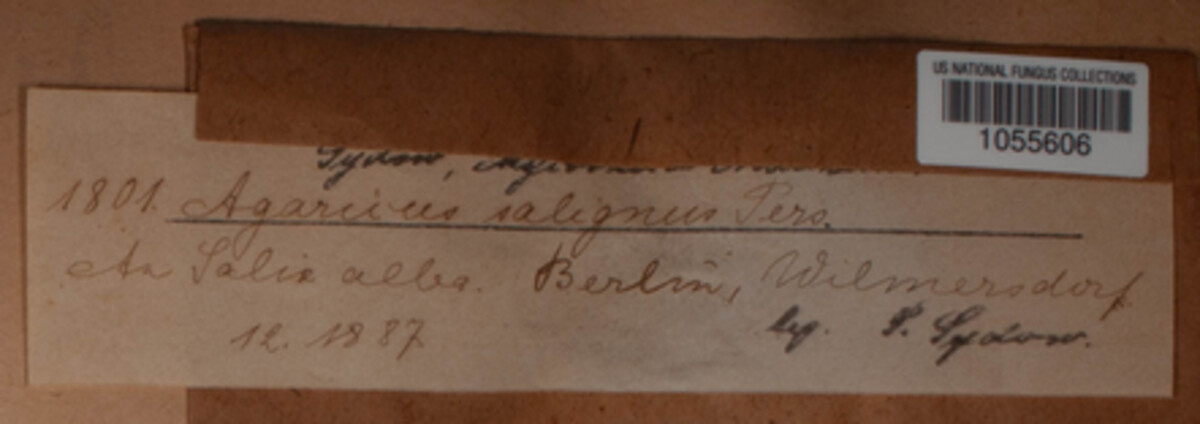 US NATIONAL FUNGUS COLLECTIONS
1055606
Sydow,
1801. Agaricus salignus Pers.
An Salix alba. Berlin, Wilmersdorf
12. 1887 leg. P. Sydow.